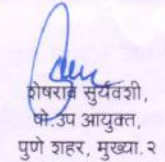 शेषराव सुर्यवंशी,
पो.उप आयुक्त,
पुणे शहर, मुख्या. २